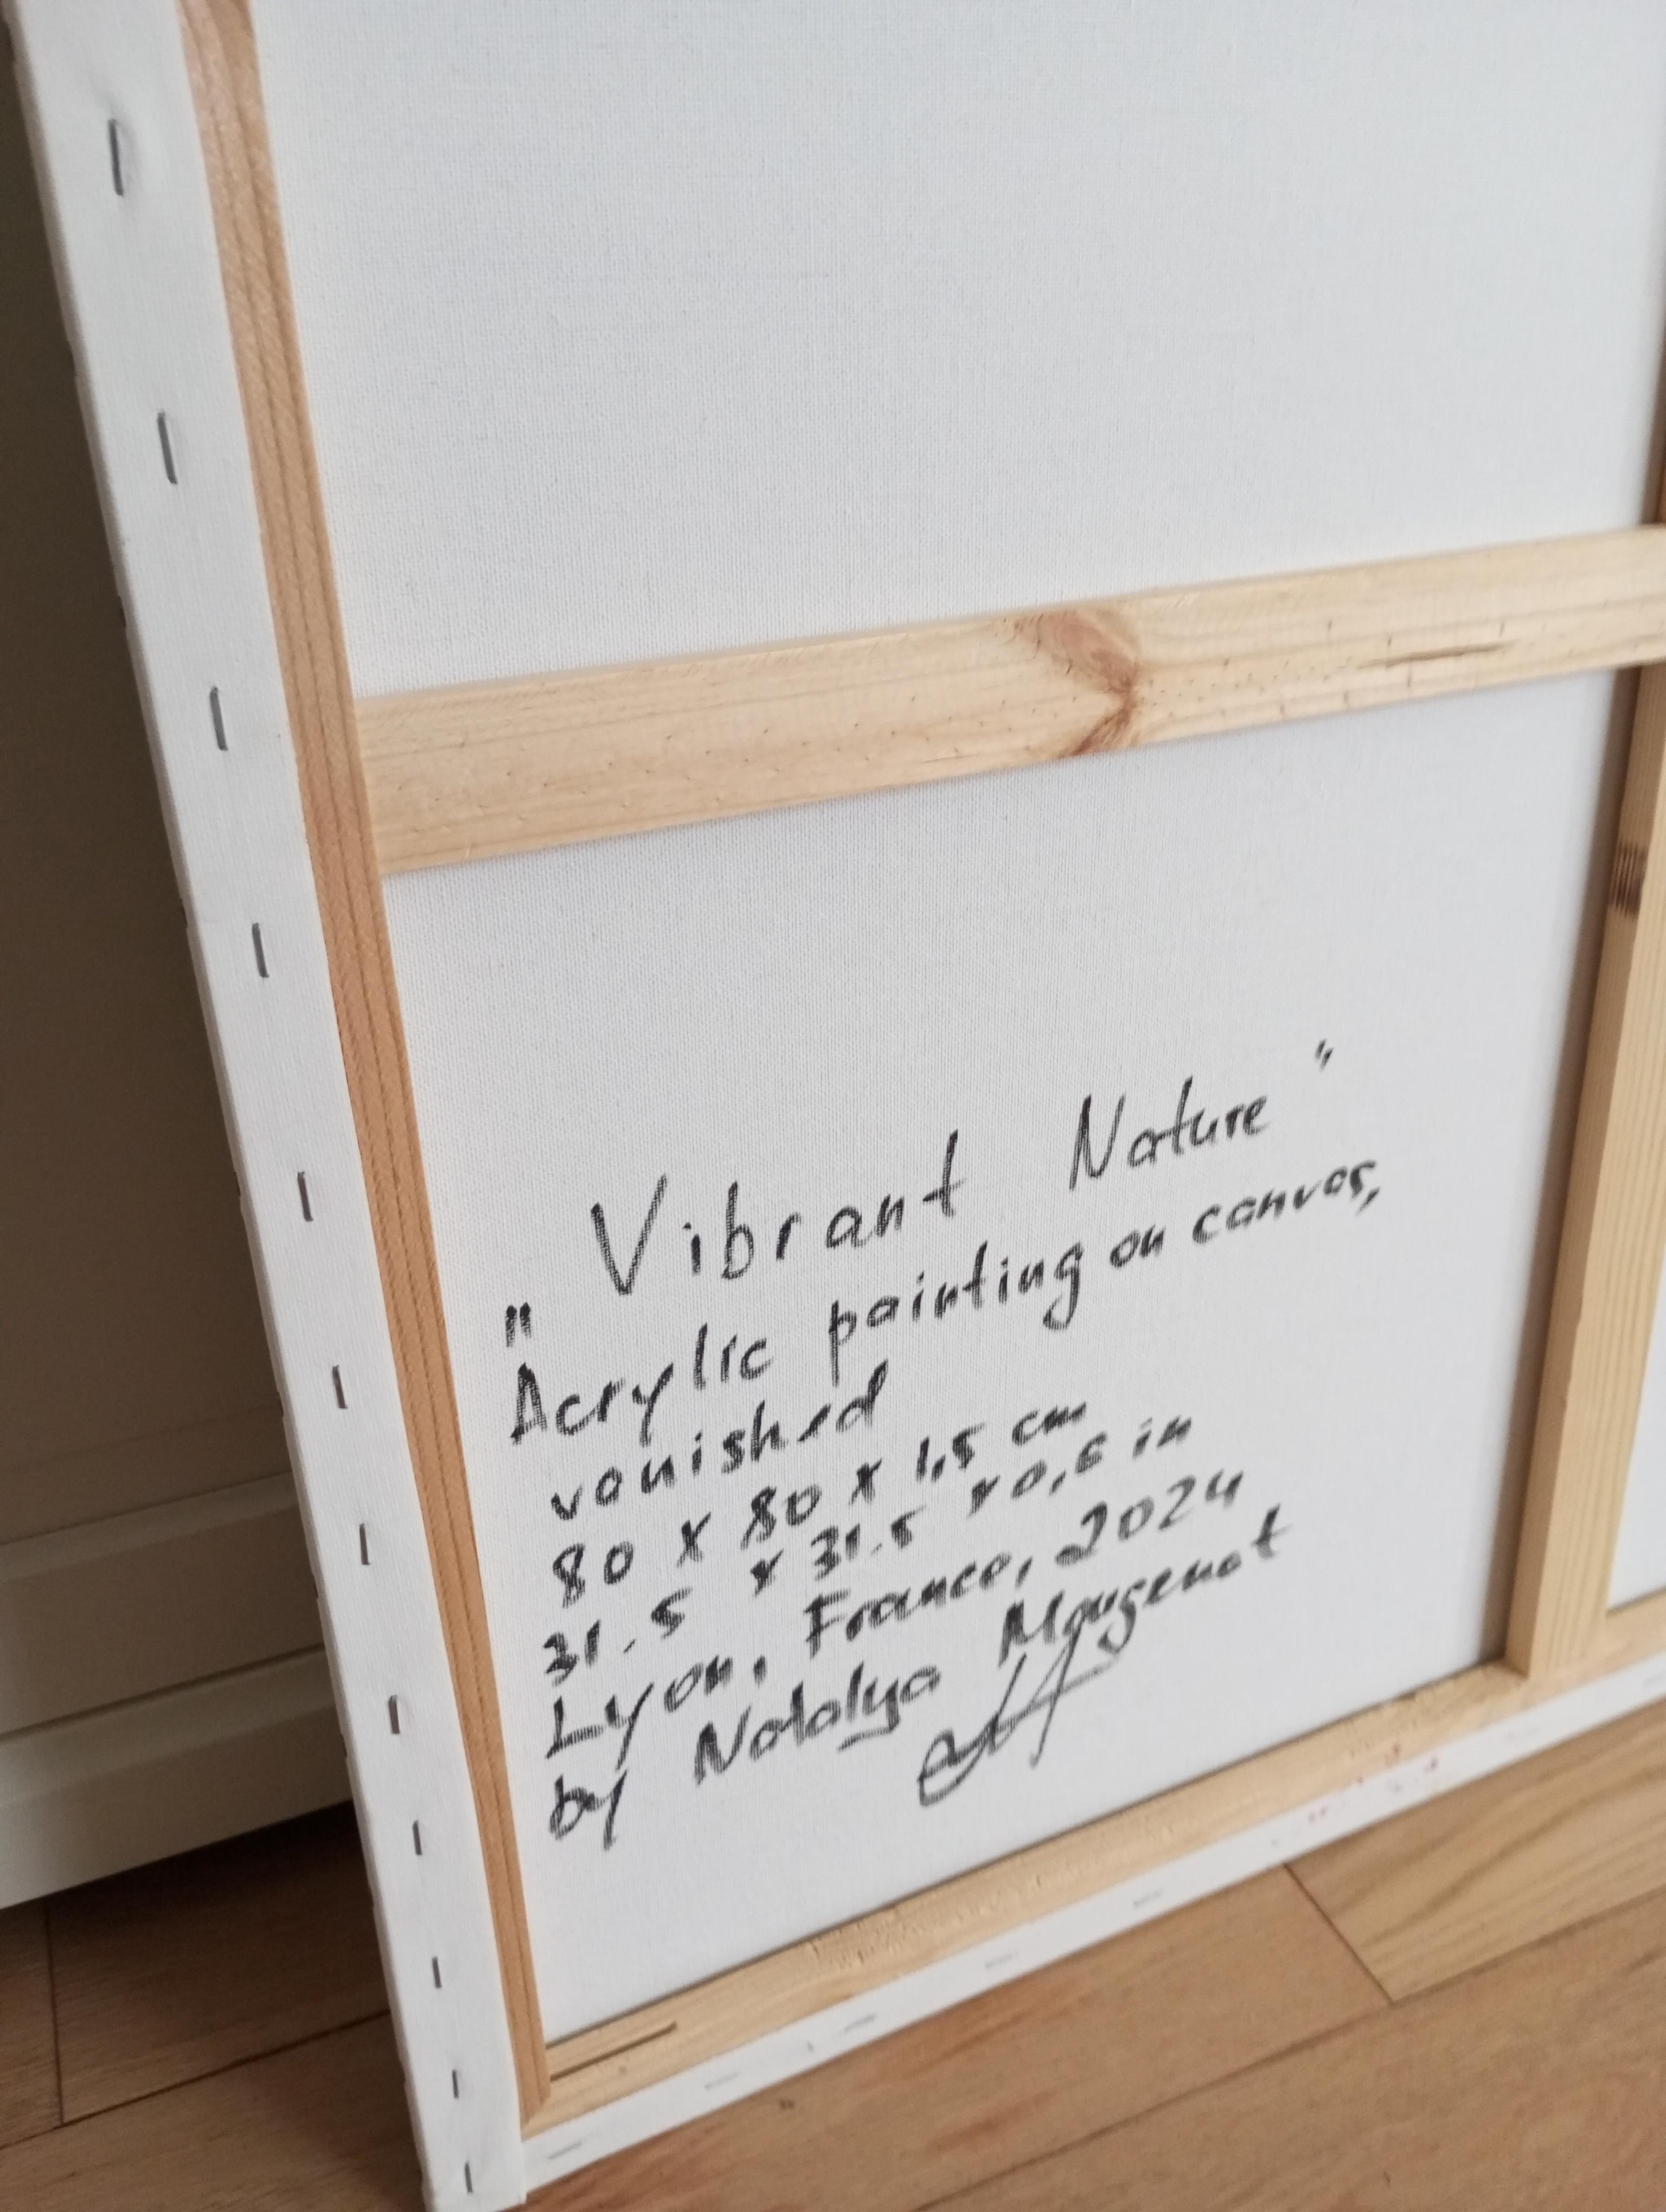 „Vibrant Nature"
Acrylic painting on canvas,
vanished
80 x 80 x 1,5 cm
31.5 x 31.5 x 0,6 in
Lyon, France, 2024
by Natalya Mougenot